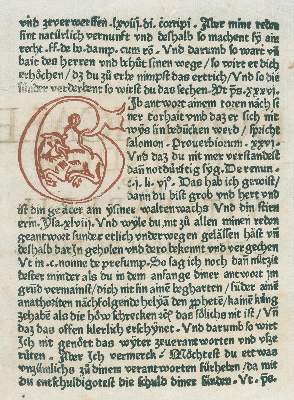 vnd zeyerwerffen. lxviii. di. corripi. Aber mine reden
sint natürlich vernufft vnd deshalb so machent sy am
recht. ff. de bo. damp. cum rē. Vnd darumb so wart vn̄
baic des herren vnd behüt sinen wege/ so wirt er dich
erhöchen/ dz du zu erbe nimpst das erttrich/ Vnd so die
sünder verderbent so wirst du das sechen. Vt ps. xxxvi.
Gid antwort ainem toren nach si
ner torhait vmb daz er sich nit
wÿs sin beduncken werd/ spricht
salomon. Prouerbiorum. xxvi.
Vnd daz du nit mer verstandest
dan notdürftig syg. De renun.
c. i. k. vi°. Das hab ich gewist/
dann du bist grob vnd hert vnd
ist din geäcer am ysiner waltenwachs vnd din stirn
erin. Vsa. xlviii. Vnd wyle du mir zu allen minen reden
geantwort sunder etlich vnder wegen gelässen häst vn̄
deshalb dar In geholen vnd dero bekennt vnd vergechen
Vt in c. nonne de presump. So sag ich noch dan nützit
dester minder als du in dem anfange diner antwort im
grund vermainst/ dich nit sin aine begharten/ sunder aine
anathoriten nachfolgende helyā den pphetē/ kaine küng
zehabē als die höw schrecken des sālichs nit ist/ vn̄
daz das offen kleerlich erschÿnet. Vnd darumb so wirt
Ich nit genött das wyter zeuerantworten vnd vsze
rüten. Aber Ich vermerck Möchtest du ett was
vnzimlichs zu dinem verantworten fürheben/ da mit
du entschuldigotest die schuld diner sünden. Vt. ps.